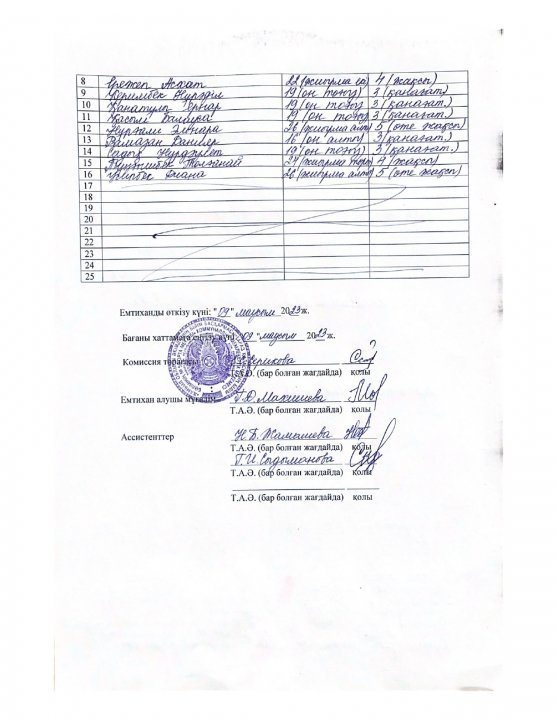 8 Ережеп Асхат 22 (жиырма екі) 4 (жақсы)
9 Керімбек Нұрәділ 19 (он тоғыз) 3 (қанағат.)
10 Қанатұлы Ернар 19 (он тоғыз) 3 (қанағат.)
11 19 (он тоғыз) 3 (қанағат.)
12 Нұрғали Эльнара 26 (жиырма алты) 5 (өте жақсы)
13 Рамазан Данияр 16 (он алты) 3 (қанағат.)
14 Нұрдәулет 19 (он тоғыз) 3 (қанағат.)
15 24 (жиырма төрт) 4 (жақсы)
16 Диана 26 (жиырма алты) 5 (өте жақсы)
17
18
19
20
21
22
23
24
25
Емтиханды өткізу күні: "09" маусым 2023 ж.
Бағаны хаттамаға енгізу күні: "09" маусым 2023 ж.
Комиссия төрағасы
Т.А.Ә. (бар болған жағдайда) қолы
Емтихан алушы мұғалім
Т.А.Ә. (бар болған жағдайда) қолы
Ассистенттер Н.Б. Жамышева
Т.А.Ә. (бар болған жағдайда) қолы
Г.И. Сыдыманова
Т.А.Ә. (бар болған жағдайда) қолы
Т.А.Ә. (бар болған жағдайда) қолы